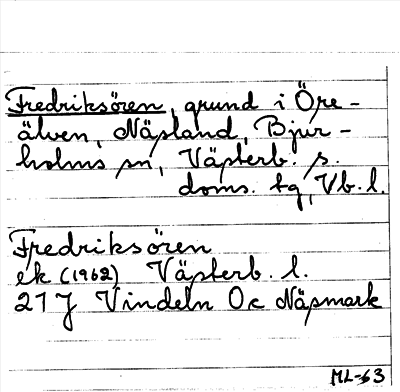 Fredriksören, grund i Öre-
älven, Näsland, Bjur-
holms sn, Västerb. s.
doms. tg, Vb. l.
Fredriksören
ek (1962) Västerb. l.
21 J Vindeln 0c Näsmark
ML-63